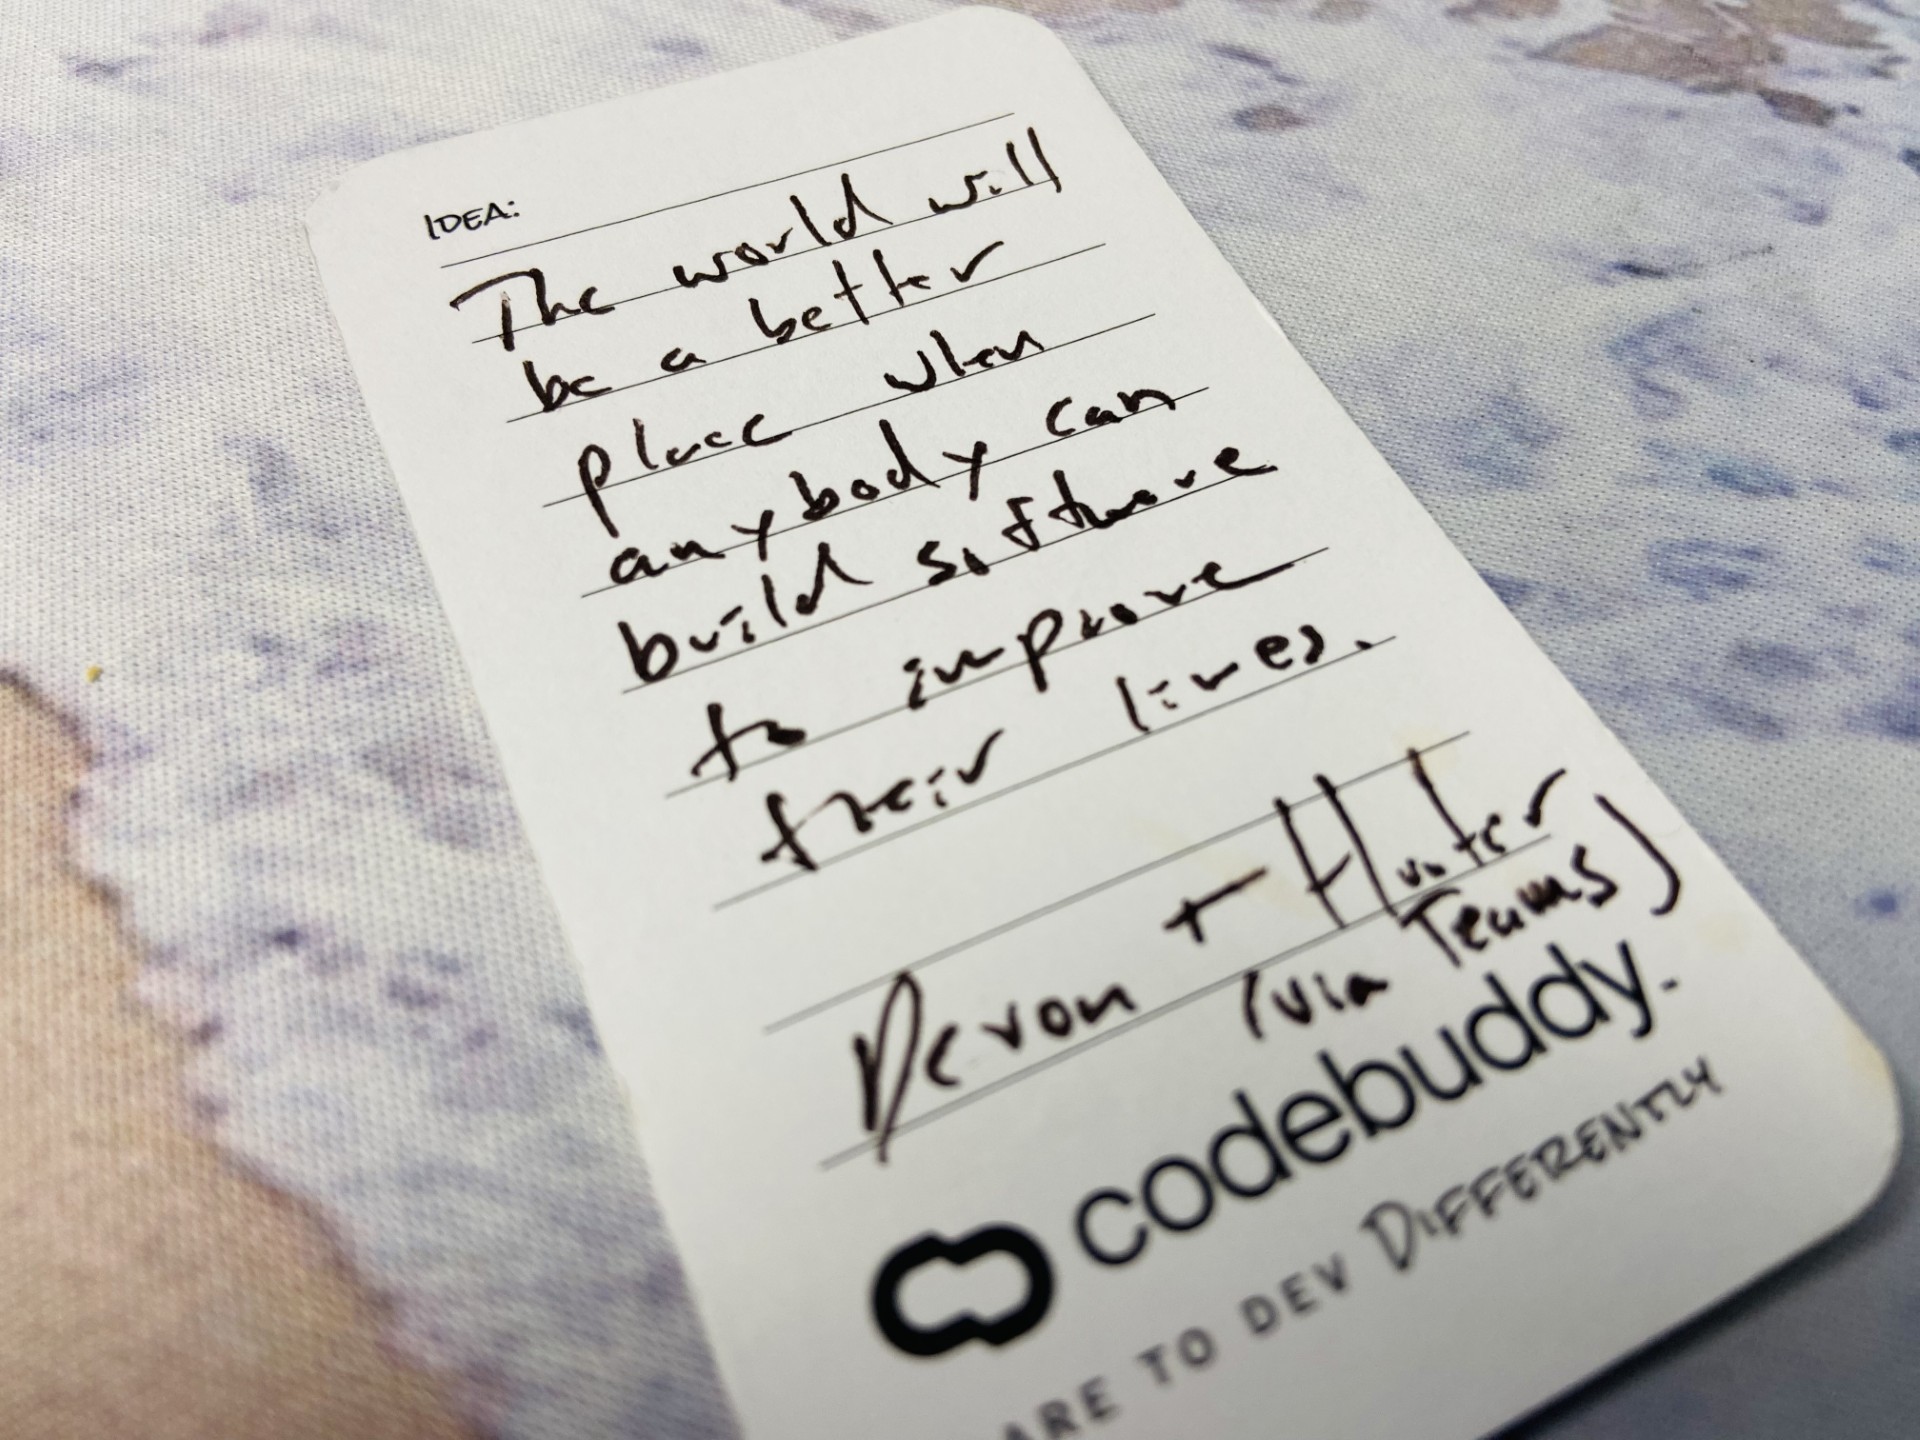 IDEA:
The world will
be a better
place when
anybody can
build software
to improve
their lives.
Devon + Hunter
(via Teams)
codebuddy.
ARE TO DEV DIFFERENTLY